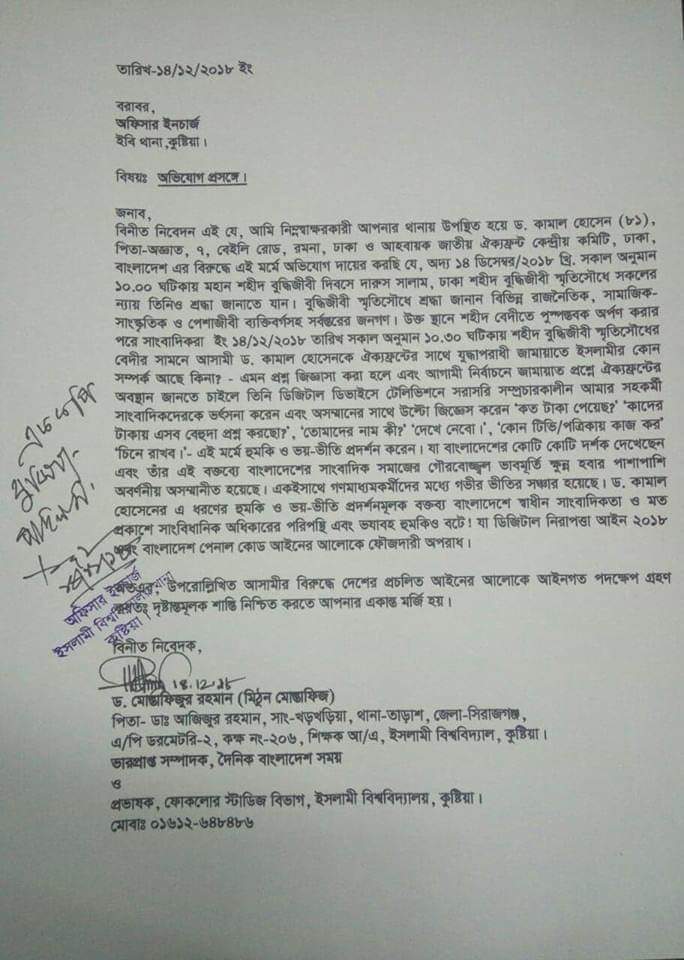 তারিখ-১৪/১২/২০১৮ ইং
বরাবর,
অফিসার ইনচার্জ
ইবি থানা,কুষ্টিয়া।
বিষয়ঃ অভিযোগ প্রসঙ্গে।
জনাব,
বিনীত নিবেদন এই যে, আমি নিম্নস্বাক্ষরকারী আপনার থানায় উপস্থিত হয়ে ড. কামাল হোসেন (৮১),
পিতা-অজ্ঞাত, ৭, বেইলি রোড, রমনা, ঢাকা ও আহবায়ক জাতীয় ঐক্যফ্রন্ট কেন্দ্রীয় কমিটি, ঢাকা,
বাংলাদেশ এর বিরুদ্ধে এই মর্মে অভিযোগ দায়ের করছি যে, অদ্য ১৪ ডিসেম্বর/২০১৮ খ্রি. সকাল অনুমান
১০.০০ ঘটিকায় মহান শহীদ বুদ্ধিজীবী দিবসে দারুস সালাম, ঢাকা শহীদ বুদ্ধিজীবী স্মৃতিসৌধে সকলের
ন্যায় তিনিও শ্রদ্ধা জানাতে যান। বুদ্ধিজীবী স্মৃতিসৌধে শ্রদ্ধা জানান বিভিন্ন রাজনৈতিক, সামাজিক-
সাংস্কৃতিক ও পেশাজীবী ব্যক্তিবর্গসহ সর্বস্তরের জনগণ। উক্ত স্থানে শহীদ বেদীতে পুষ্পস্তবক অর্পণ করার
পরে সাংবাদিকরা ইং ১৪/১২/২০১৮ তারিখ সকাল অনুমান ১০.৩০ ঘটিকায় শহীদ বুদ্ধিজীবী স্মৃতিসৌধের
বেদীর সামনে আসামী ড. কামাল হোসেনকে ঐক্যফ্রন্টের সাথে যুদ্ধাপরাধী জামায়াতে ইসলামীর কোন
সম্পর্ক আছে কিনা? - এমন প্রশ্ন জিজ্ঞাসা করা হলে এবং আগামী নির্বাচনে জামায়াত প্রশ্নে ঐক্যফ্রন্টের
অবস্থান জানতে চাইলে তিনি ডিজিটাল ডিভাইসে টেলিভিশনে সরাসরি সম্প্রচারকালীন আমার সহকর্মী
সাংবাদিকদেরকে ভর্ৎসনা করেন এবং অসম্মানের সাথে উল্টো জিজ্ঞেস করেন ‘কত টাকা পেয়েছ?’ ‘কাদের
টাকায় এসব বেহুদা প্রশ্ন করছো?’, ‘তোমাদের নাম কী?’ ‘দেখে নেবো।’, ‘কোন টিভি/পত্রিকায় কাজ কর’
‘চিনে রাখব।’- এই মর্মে হুমকি ও ভয়-ভীতি প্রদর্শন করেন। যা বাংলাদেশের কোটি কোটি দর্শক দেখেছেন
এবং তাঁর এই বক্তব্যে বাংলাদেশের সাংবাদিক সমাজের গৌরবোজ্জ্বল ভাবমূর্তি ক্ষুন্ন হবার পাশাপাশি
অবর্ণনীয় অসম্মানীত হয়েছে। একইসাথে গণমাধ্যমকর্মীদের মধ্যে গভীর ভীতির সঞ্চার হয়েছে। ড. কামাল
হোসেনের এ ধরণের হুমকি ও ভয়-ভীতি প্রদর্শনমূলক বক্তব্য বাংলাদেশে স্বাধীন সাংবাদিকতা ও মত
প্রকাশে সাংবিধানিক অধিকারের পরিপন্থি এবং ভয়াবহ হুমকিও বটে! যা ডিজিটাল নিরাপত্তা আইন ২০১৮
এবং বাংলাদেশ পেনাল কোড আইনের আলোকে ফৌজদারী অপরাধ।
অতএব, উপরোল্লিখিত আসামীর বিরুদ্ধে দেশের প্রচলিত আইনের আলোকে আইনগত পদক্ষেপ গ্রহণ
করতঃ দৃষ্টান্তমূলক শাস্তি নিশ্চিত করতে আপনার একান্ত মর্জি হয়।
অফিসার ইনচার্জ
ইসলামী বিশ্ববিদ্যালয় থানা
কুষ্টিয়া।
বিনীত নিবেদক,
১৪.১২.১৮
ড. মোস্তাফিজুর রহমান (মিঠুন মোস্তাফিজ)
পিতা- ডাঃ আজিজুর রহমান, সাং-খড়খড়িয়া, থানা-তাড়াশ, জেলা-সিরাজগঞ্জ,
এ/পি ডরমেটরি-২, কক্ষ নং-২০৬, শিক্ষক আ/এ, ইসলামী বিশ্ববিদ্যাল, কুষ্টিয়া।
ভারপ্রাপ্ত সম্পাদক, দৈনিক বাংলাদেশ সময়
ও
প্রভাষক, ফোকলোর স্টাডিজ বিভাগ, ইসলামী বিশ্ববিদ্যালয়, কুষ্টিয়া।
মোবাঃ ০১৬১২-৬৪৮৪৮৬